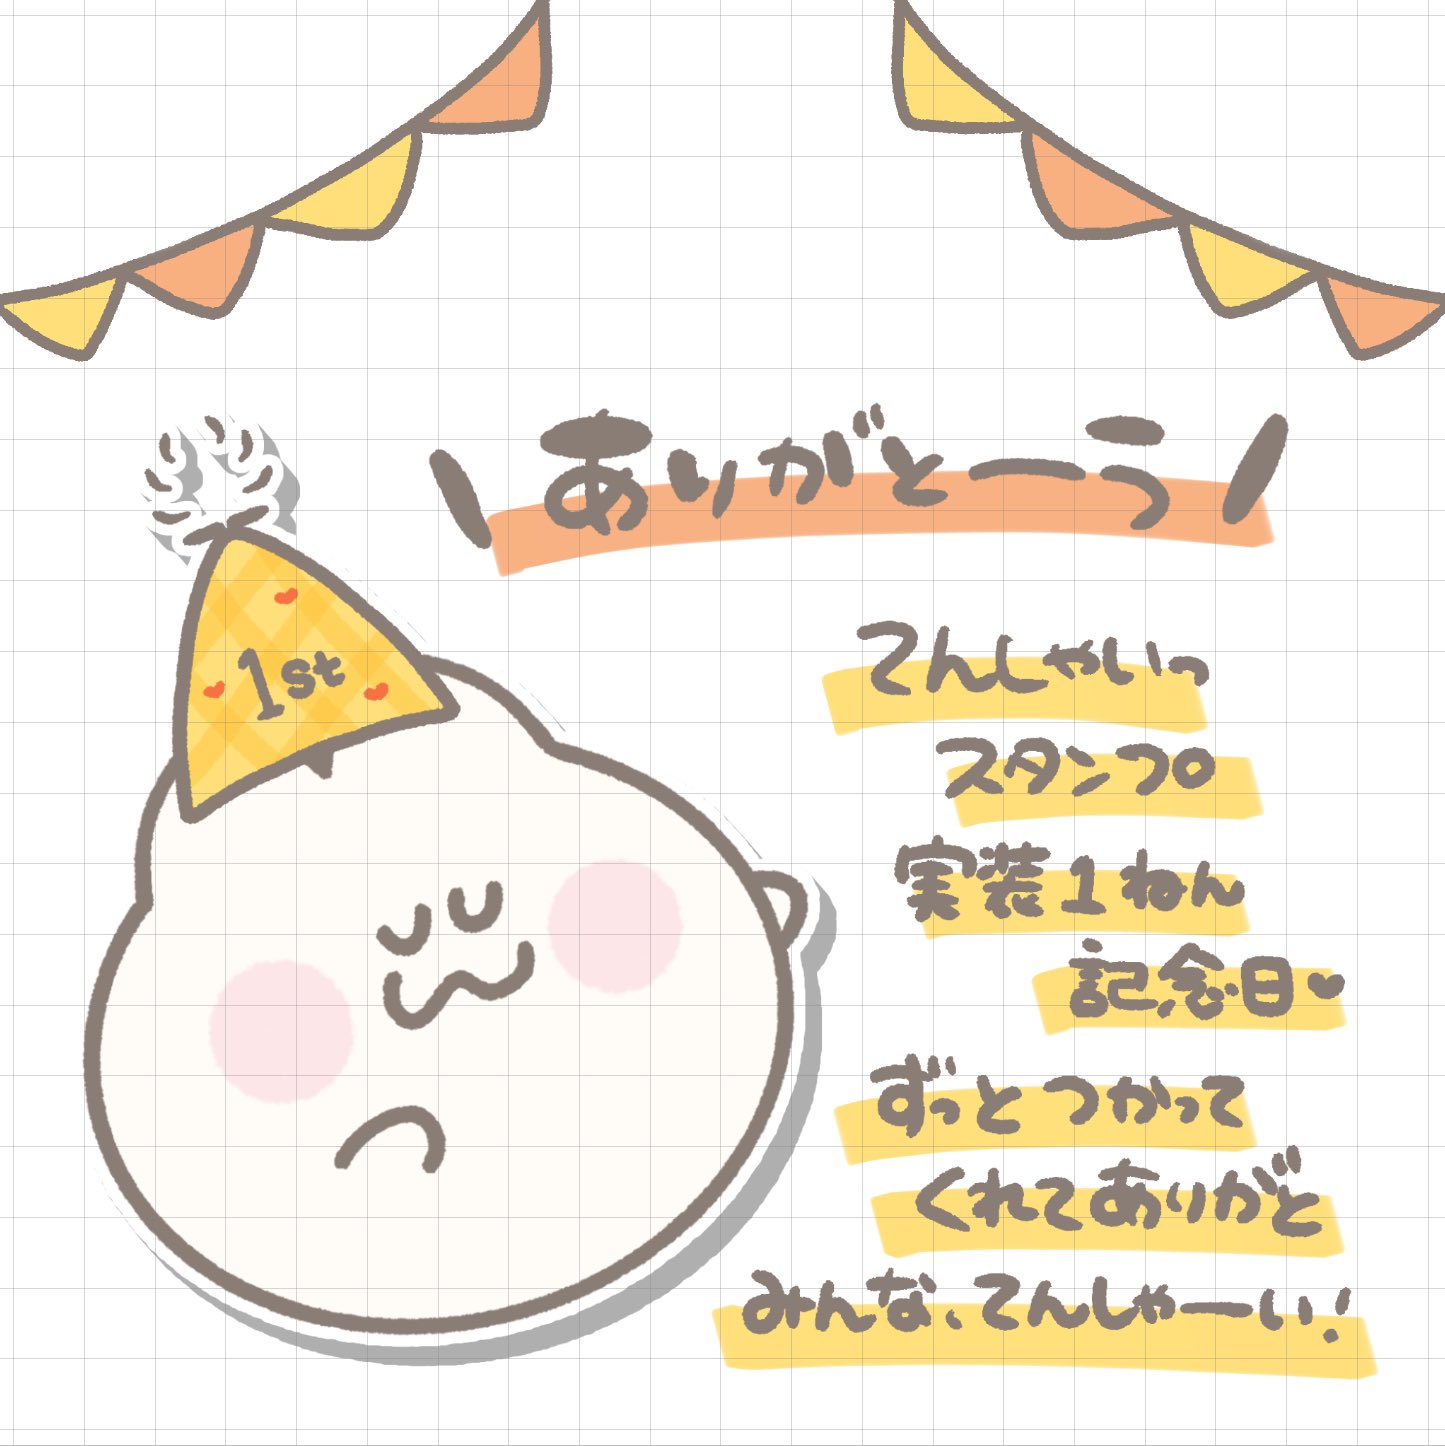 \ありがとーう/
1st
てんしゃいっ
スタンプ
実装1ねん
記念日♥
ずっとつかって
くれてありがと
みんな、てんしゃーい!